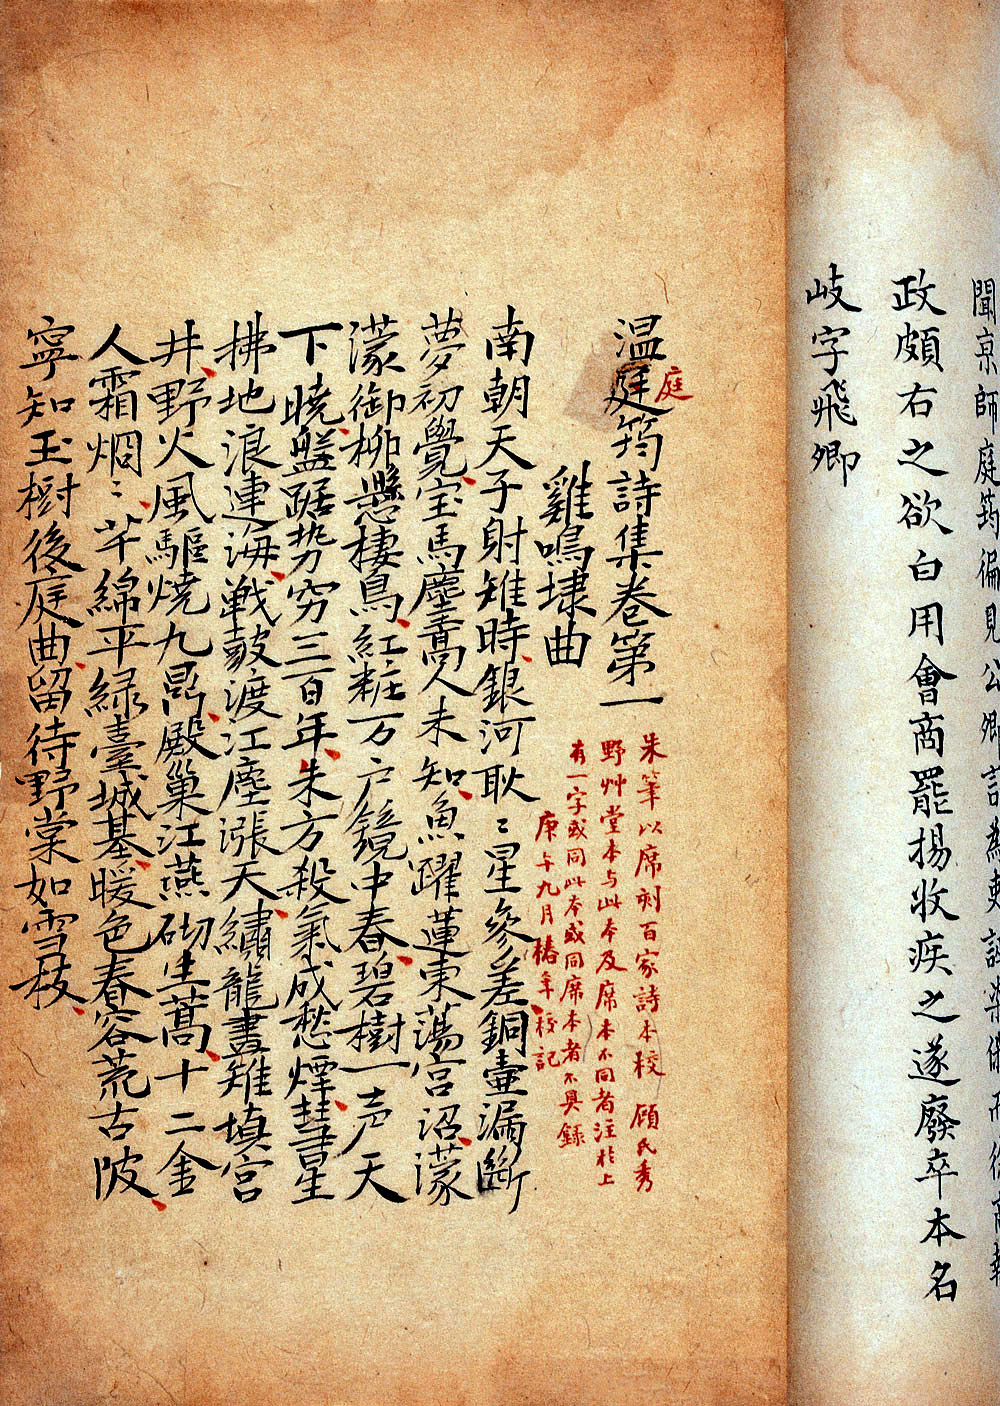 聞京師庭筠徧見公卿言為吏誣染俄而徐商執
政頗右之欲白用會商罷揚收疾之遂廢卒本名
岐字飛卿
温庭筠詩集卷第一
庭
朱筆以席刻百家詩本校顧氏秀
野艸堂本与此本及席本不同者注於上
有一字或同此本或同席本者不具録
庚午九月椿年校記
雞鳴埭曲
南朝天子射雉時銀河耿〻星參差銅壷漏斷
夢初覺宝馬塵髙人未知魚躍蓮東蕩宫沼濛
濛御栁懸棲鳥紅粧万户鏡中春碧樹一声天
下曉盤踞势穷三百年朱方殺氣成愁煙彗星
拂地浪連海戦鼓渡江塵漲天繡龍畫雉填宫
井野火風驅燒九鼎殿巢江燕砌生蒿十二金
人霜烱〻芊綿平緑臺城基暖色春容荒古陂
寧知玉樹後庭曲留待野棠如雪枝